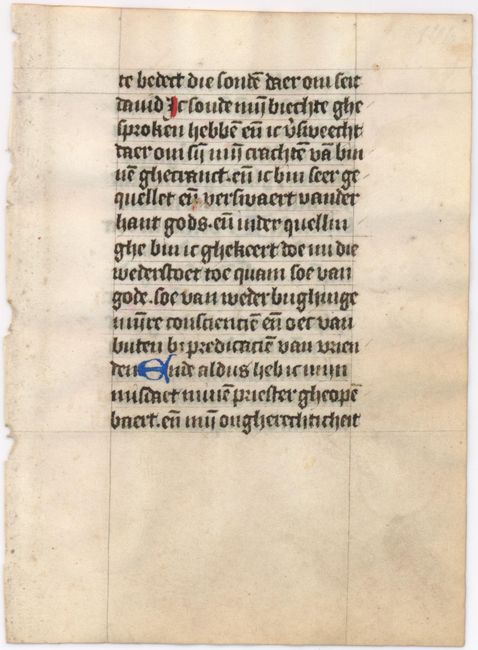 te bedect die sondē daer om seit
david Ic soude mijn biechte ghe
sproken hebbē eñ ic v̄sweecht
daer om sijn mijn crachtē vā bin
nē ghecranct. eñ ic bin seer ge
quellet eñ verswaert vander
hant gods. eñ in der quellin
ghe bin ic ghekeert doe mi die
wederstoet toe quam soe van
gode. soe van weder bughinge
mijnre consciencië eñ oec van
buten bi predicacië van vrien
den Ende aldus heb ic mijn
misdaet minē priester gheopē
baert. eñ mijn ongherechticheit